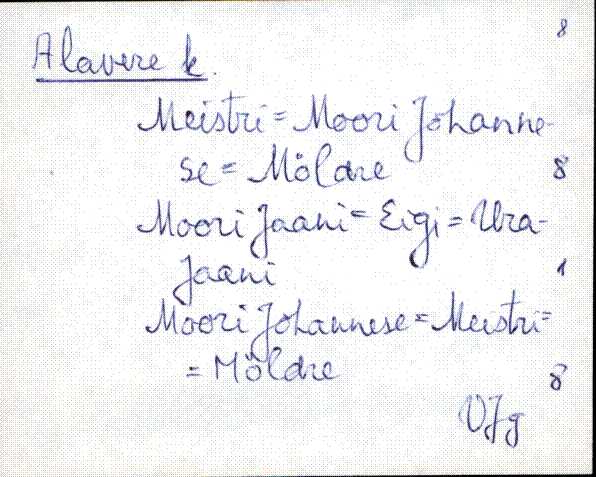 8
Alavere k.
Meistri = Moori Johanne-
se = Möldre 8
Moori Jaani = Eigi = Ura-
Jaani 1
Moori Johannese = Meistri =
= Möldre 8
VJg